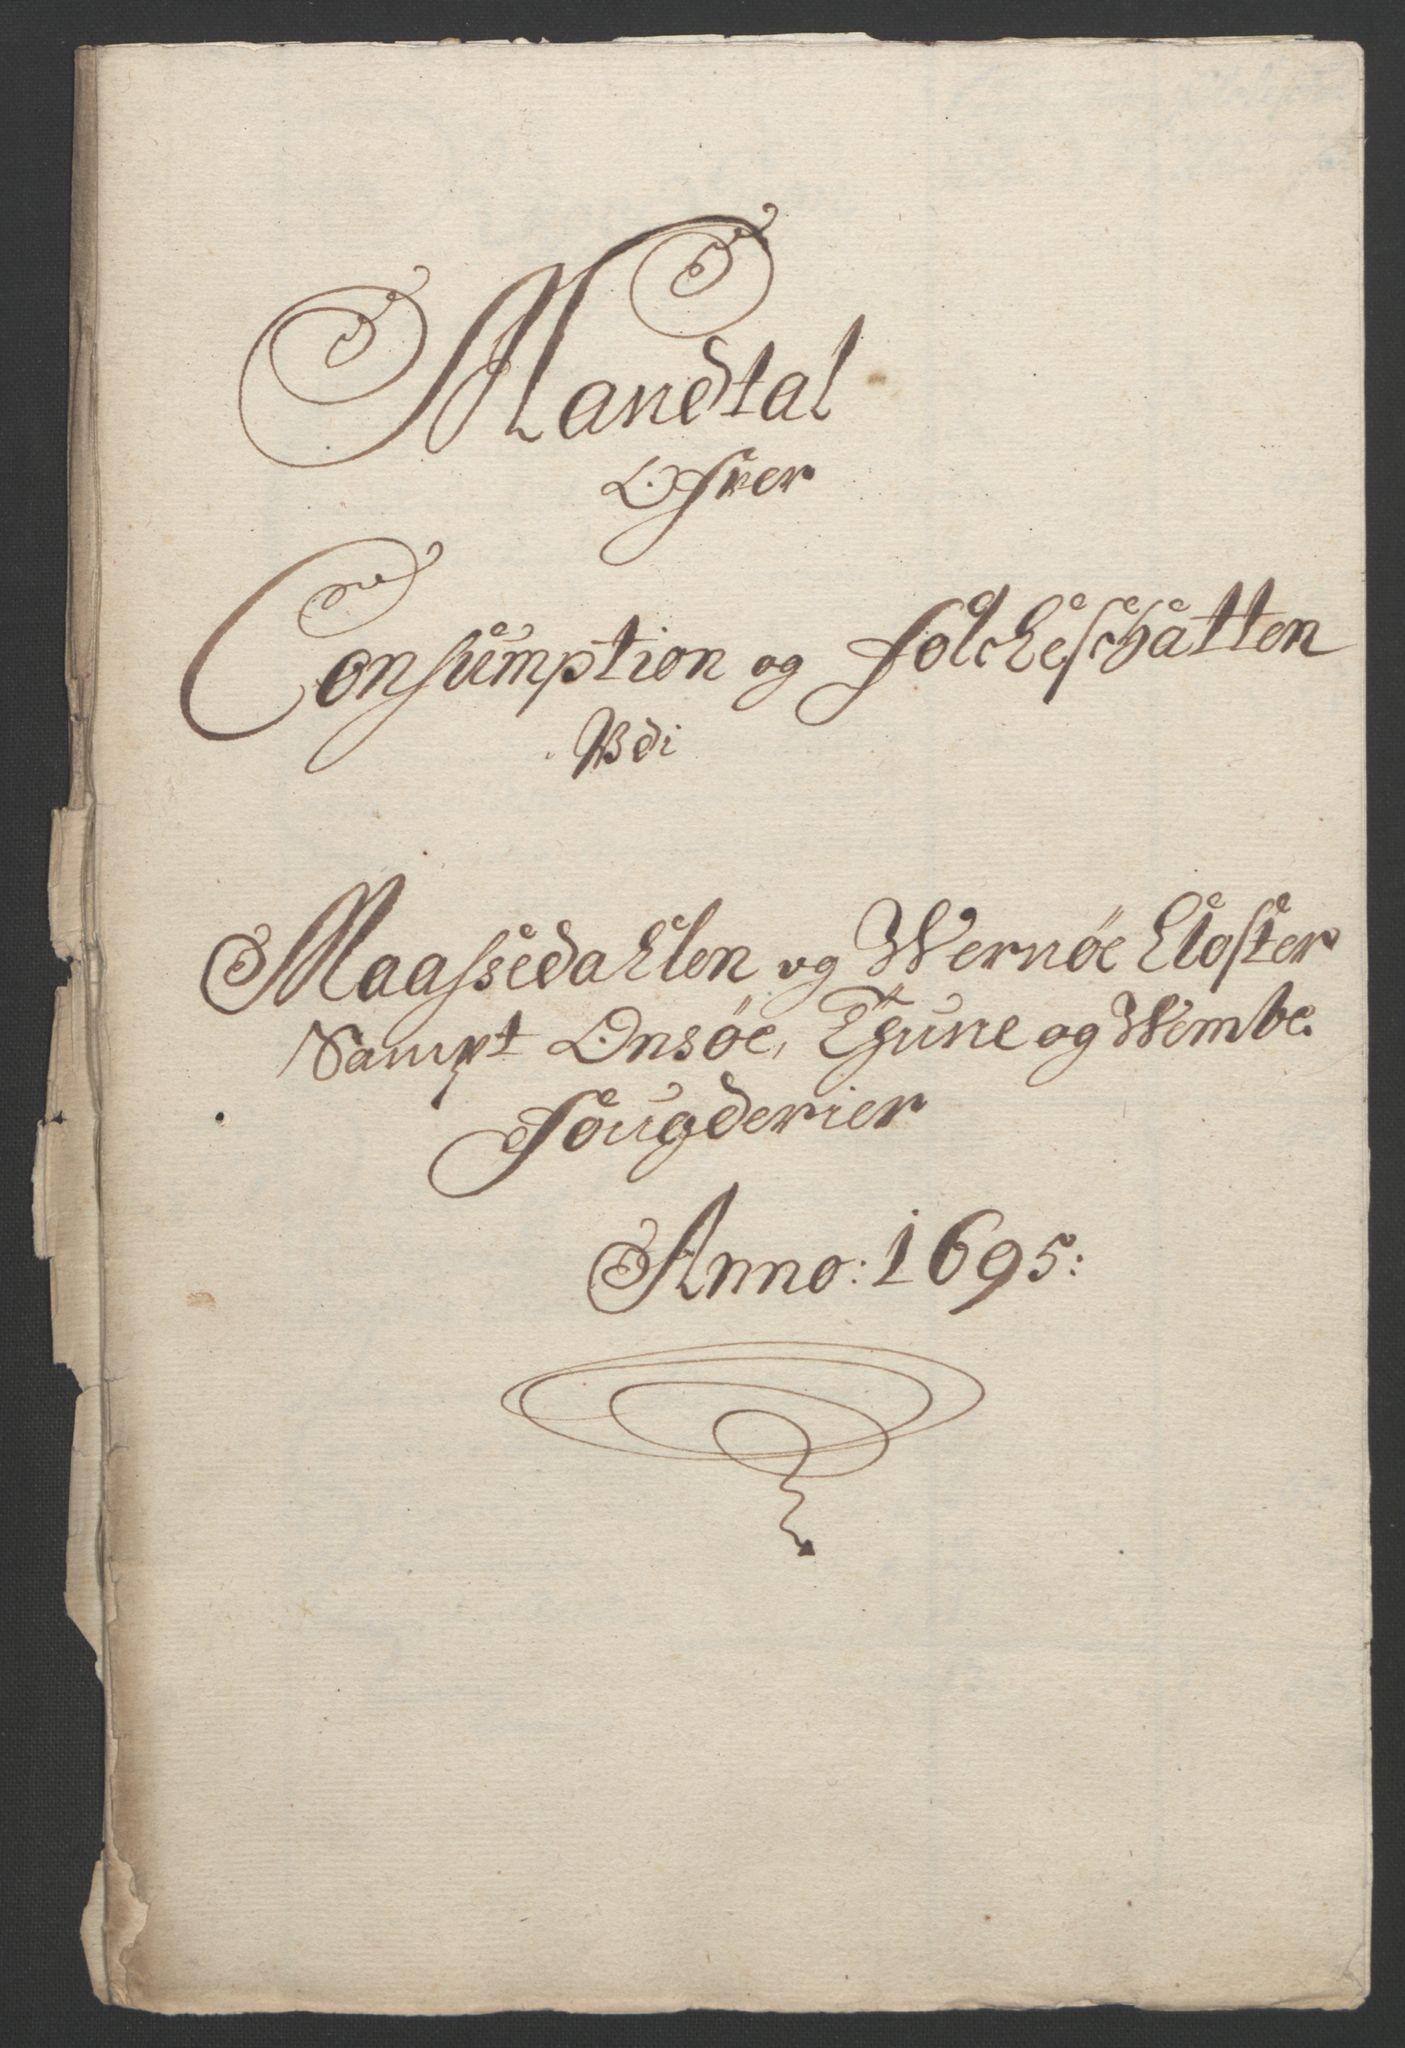 Mandtal
Ofver
Consumption og Folcheschatten
Vdi
Maassedahlen og Wernøe Closter
Sampt Onsøe, Thune og Wembe
Fougderier
Anno: 1695: